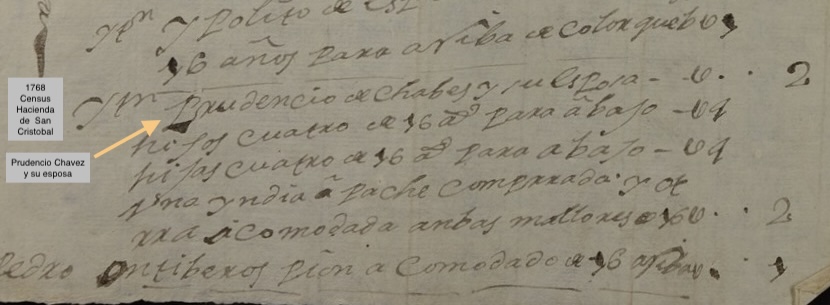 Ytn Ypolito de esp
16 años para ariba de color quebro
1768
Census
Hacienda
de San
Cristobal
Ytn Prudencio de chabes y su esposa - 0 . . 2
hijos cuatro de 16 as para abajo - 0 4
Prudencio Chavez
y su esposa
hijas cuatro de 16 as para abajo - 0 4
una yndia apache comprrada y ot
rra acomodada anbas mallores de 16 0 . . 2
Pedro Ontiberos pion acomodado de 16 ariba . . 1